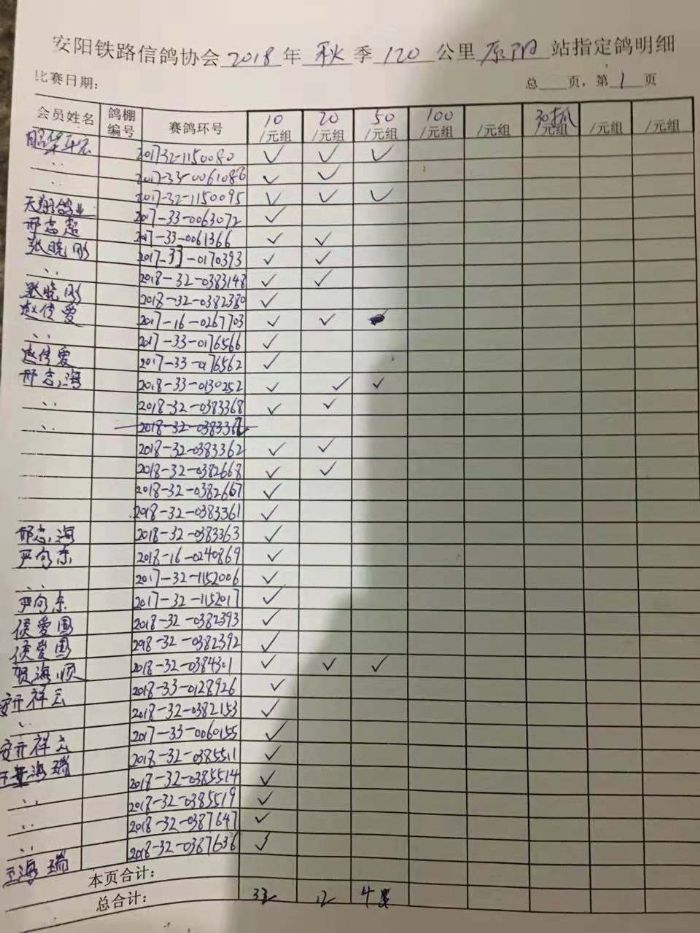 安阳铁路信鸽协会 2018 年 秋 季 120 公里 原阳 站指定鸽明细
比赛日期： 总 页，第 1 页
会员姓名 鸽棚编号 赛鸽环号 10/元组 20/元组 50/元组 100/元组 /元组 /元组 /元组 /元组
2017-32-1150080 ✓ ✓ ✓
〃 2017-33-0061086 ✓ ✓
〃 2017-32-1150095 ✓ ✓ ✓
天翔鸽业 2017-33-0063072 ✓
邢志超 2017-33-0061366 ✓ ✓
张晓刚 2017-33-0170393 ✓ ✓
〃 2018-32-0383148 ✓ ✓
张晓刚 2018-32-0382380 ✓
赵传爱 2017-16-0267703 ✓ ✓
〃 2017-33-0176566 ✓
赵传爱 2017-33-0176562 ✓
邢志海 2018-33-0130252 ✓ ✓ ✓
〃 2018-32-0383368 ✓ ✓
〃
2018-32-0383362 ✓ ✓
2018-32-0382668 ✓ ✓
2018-32-0382667 ✓
2018-32-0383361 ✓
邢志海 2018-32-0383363 ✓
严向东 2018-16-0240869 ✓
〃 2017-32-1152006 ✓
严向东 2017-32-1152017 ✓
侯爱国 2018-32-0382393 ✓
侯爱国 2018-32-0382392 ✓
贺海顺 2018-32-0384301 ✓ ✓ ✓
安开祥云 2018-33-0128926 ✓
〃 2018-32-0382153 ✓
安开祥云 2017-33-0060155 ✓
王海瑞 2018-32-0385511 ✓
〃 2018-32-0385514 ✓
〃 2018-32-0385519 ✓
〃 2018-32-0387647 ✓
王海瑞 2018-32-0387636 ✓
本页合计：
总合计： 12 4